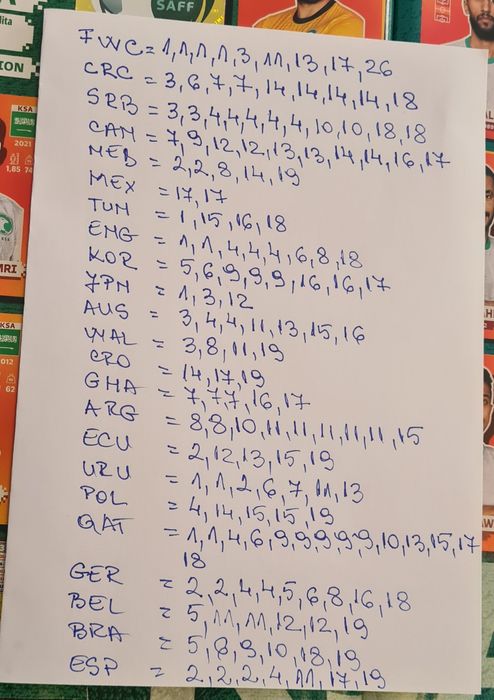 SAFF
ION
KSA
2021
1,85
MRI
KSA
2012
62
FWC = 1,1,1,1,3,11,13,17,26
CRC = 3,6,7,7,14,14,14,14,18
SRB = 3,3,4,4,4,4,4,10,10,18,18
CAN = 7,9,12,12,13,13,14,14,16,17
NED = 2,2,8,14,19
MEX = 17,17
TUN = 1,15,16,18
ENG = 1,1,4,4,4,6,8,18
KOR = 5,6,9,9,9,16,16,17
JPN = 1,3,12
AUS = 3,4,4,11,13,15,16
WAL = 3,8,11,19
CRO = 14,17,19
GHA = 7,7,7,16,17
ARG = 8,8,10,11,11,11,11,11,15
ECU = 2,12,13,15,19
URU = 1,1,2,6,7,11,13
POL = 4,14,15,15,19
QAT = 1,1,4,6,9,9,9,9,9,10,13,15,17
18
GER = 2,2,4,4,5,6,8,16,18
BEL = 5,11,11,12,12,19
BRA = 5,8,9,10,18,19
ESP = 2,2,2,4,11,17,19